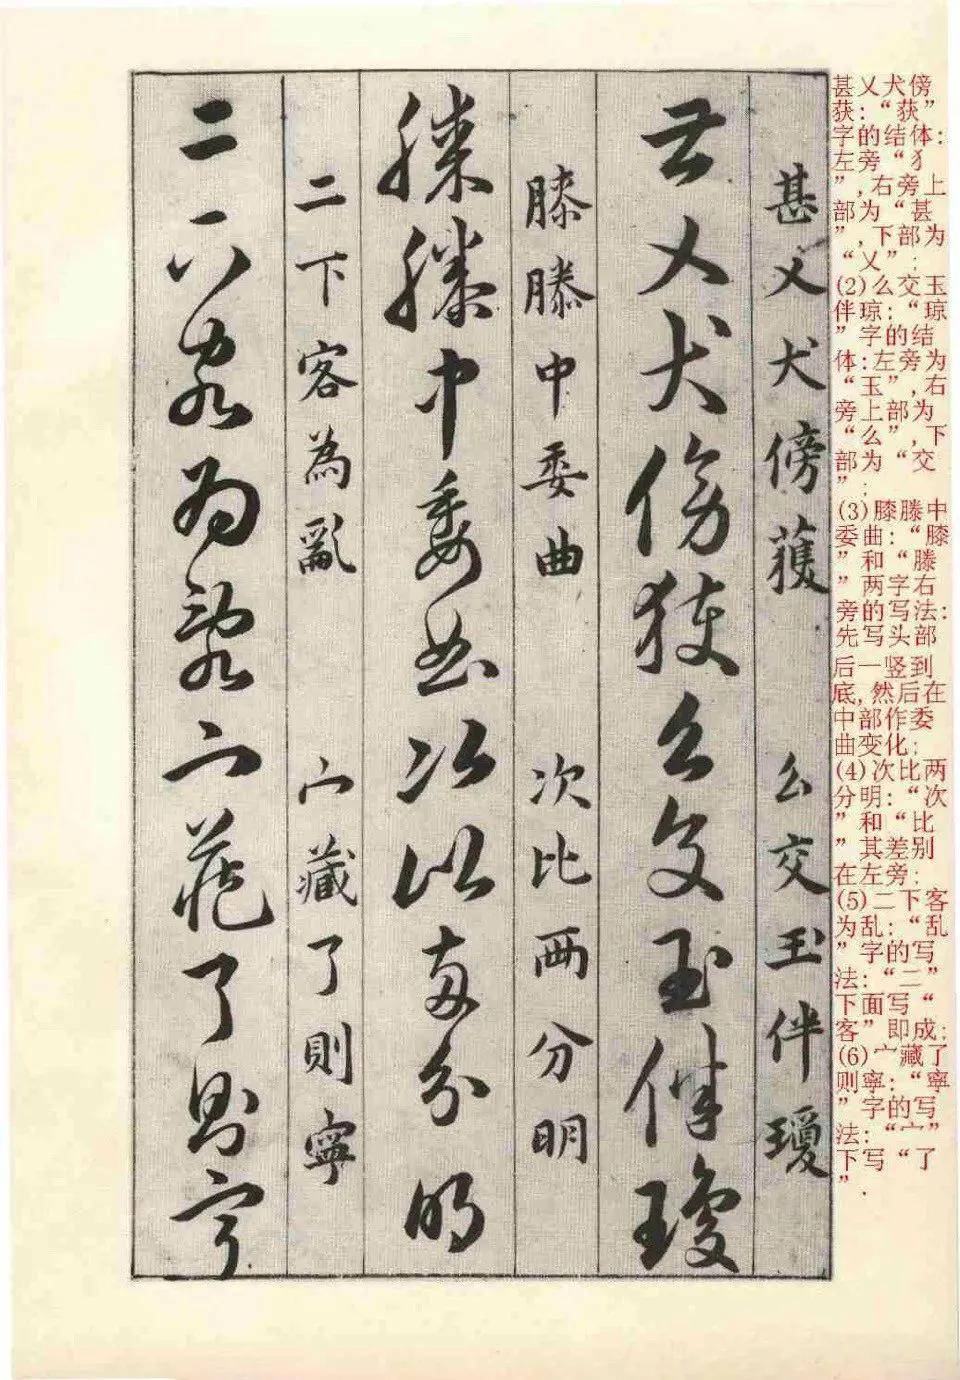 甚乂犬傍
获:“获”
字的结体:
左旁“犭
”,右旁上
部为“甚
”,下部为
“乂”;
(2)么交玉
伴琼:“琼
”字的结
体:左旁为
“玉”,右
旁上部为
“么”,下
部为“交
”;
(3)膝滕中
委曲:“膝
”和“滕
”两字右
旁的写法:
先写头部
后一竖到
底,然后在
中部作委
曲变化;
(4)次比两
分明:“次
”和“比
”其差别
在左旁;
(5)二下客
为乱:“乱
”字的写
法:“二”
下面写“
客”即成;
(6)宀藏了
则寧:“寧
”字的写
法:“宀”
下写“了
”.
甚乂犬傍獲 么交玉伴瓊
甚乂犬傍獲么交玉伴瓊
膝滕中委曲 次比兩分明
膝滕中委曲次比兩分明
二下客為亂 宀藏了則寧
二下客為亂宀藏了則寧